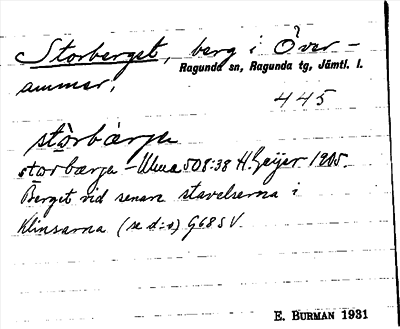 Storberget, berg i Över-
Ragunda sn, Ragunda tg, Jämtl. l.
ammer.
445
stòrbærje
storbærje - Ulma 508:38 H. Geijer 1905.
Berget vid senare stavelserna i
Klinsarna (se d:o) G68 S V.
E. BURMAN 1931